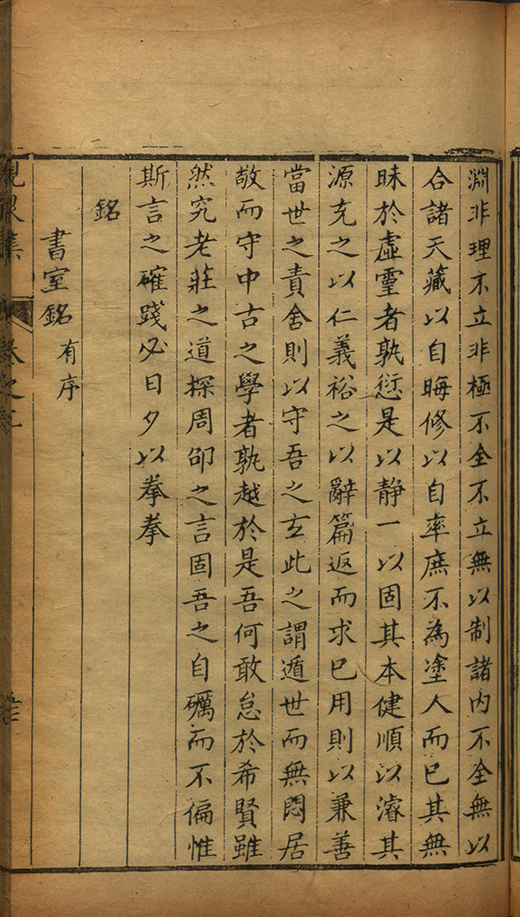 淵非理不立非極不全不立無以制諸內不全無以
合諸天藏以自晦修以自率庶不為塗人而已其無
昧於虛靈者孰愆是以静一以固其本健順以濬其
源充之以仁義裕之以辭篇返而求已用則以兼善
當世之責舍則以守吾之玄此之謂遁世而無悶居
敬而守中古之學者孰越於是吾何敢怠於希賢雖
然究老莊之道探周邵之言固吾之自礪而不偏惟
斯言之確踐必日夕以拳拳
銘
書室銘有序
集
卷之